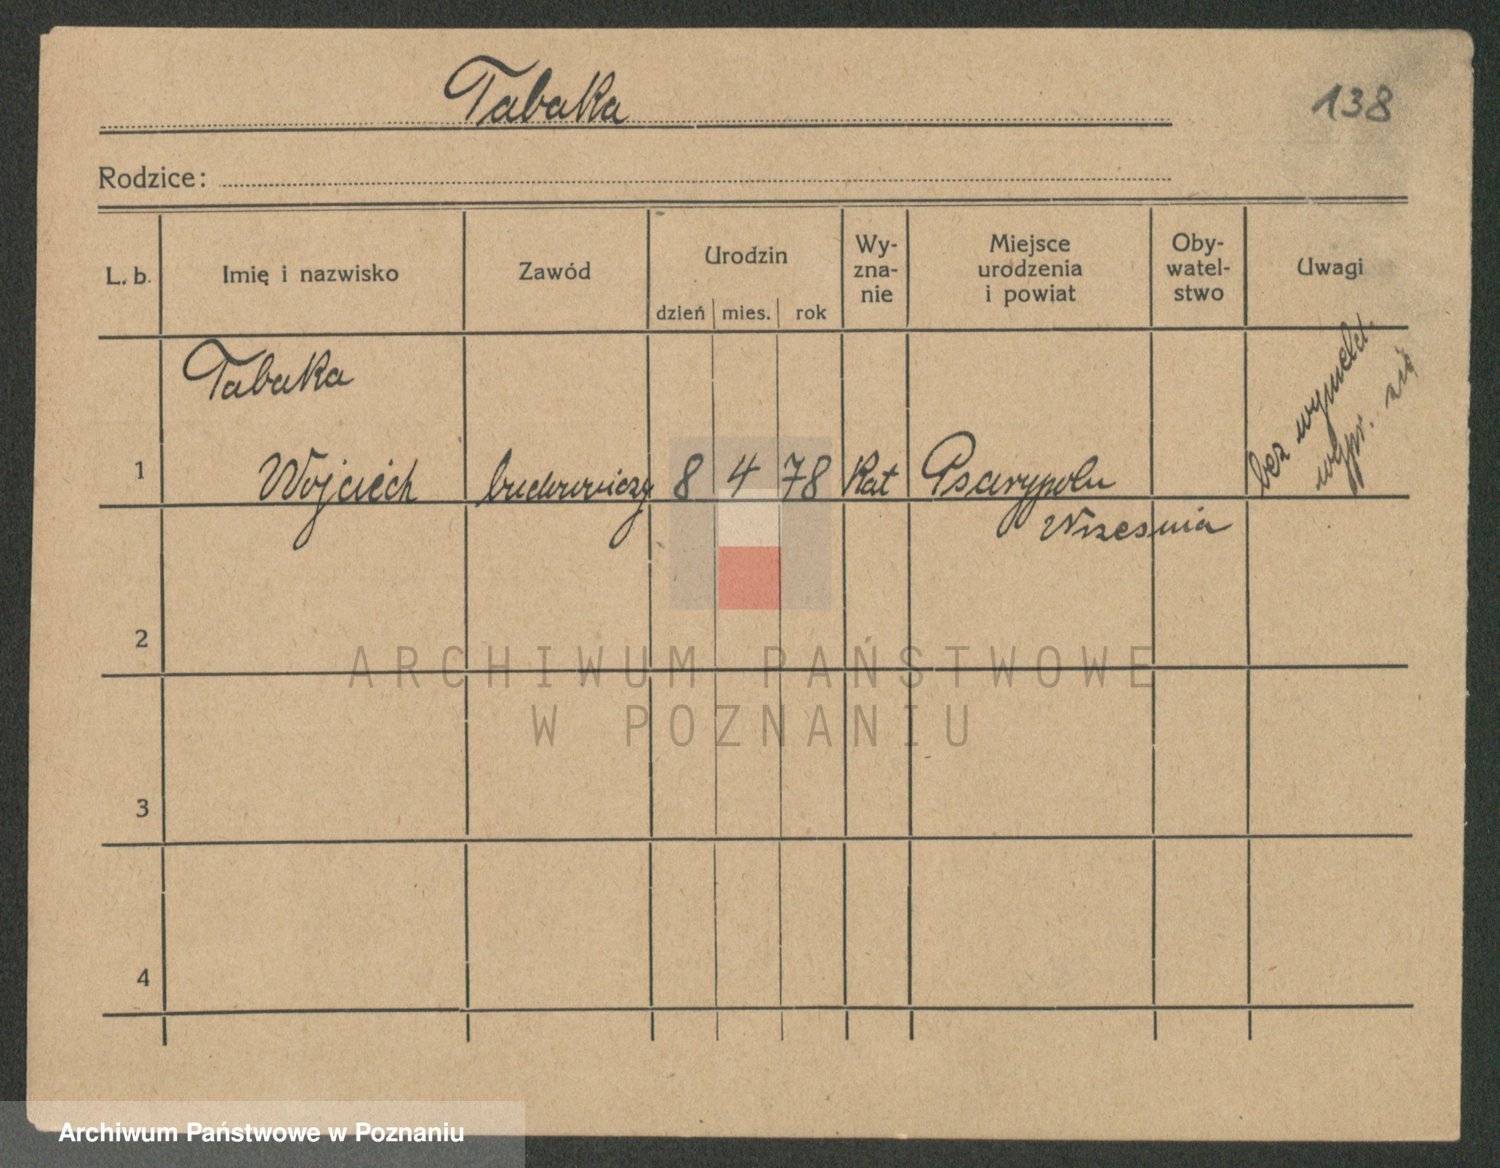 Tabaka
138
Rodzice:
L. b. Imię i nazwisko Zawód Urodzin dzień mies. rok Wy-zna-nie Miejsce urodzenia i powiat Oby-watel-stwo Uwagi
Tabaka
1 Wojciech budowniczy 8 4 78 Kat Psarypolu
Wrzesnia
bez wymeld.
wypr. się
2
3
4
ARCHIWUM PAŃSTWOWE
W POZNANIU
Archiwum Państwowe w Poznaniu